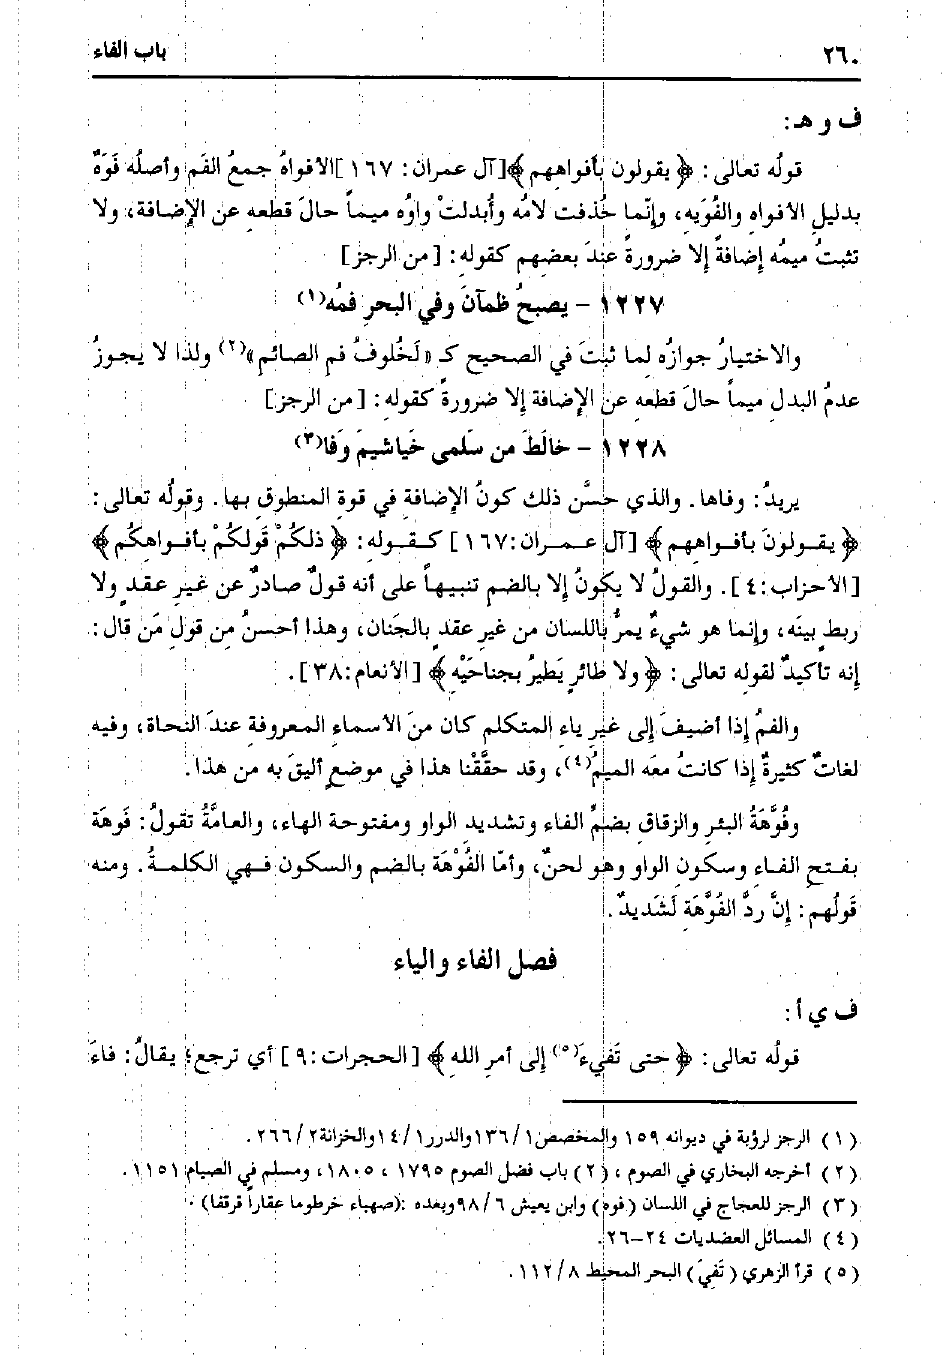 ٢٦٠ باب الفاء
ف و هـ:
قولُه تعالى: ﴿ يقولون بأفواههم ﴾[آل عمران: ١٦٧ ]الأفواهُ جمعُ الفَم وأصلُه فَوَهٌ
بدليلِ الأفواه والفُوَيه، وإنّما حُذفت لامُه وأُبدلتْ واوُه ميماً حالَ قطعه عن الإضافة، ولا
تثبتُ ميمُه إضافةً إلا ضرورةً عندَ بعضهم كقوله: [من الرجز]
١٢٢٧ - يصبحُ ظمآنَ وفي البحرِ فمُه(١)
والاختيارُ جوازُه لما ثبتَ في الصحيح كـ «لَخُلوفُ فم الصائم»(٢) ولذا لا يجوزُ
عدمُ البدلِ ميماً حالَ قطعه عن الإضافة إلا ضرورةً كقوله: [من الرجز]
١٢٢٨ - خالَطَ من سَلمى خَياشيمَ وَفا(٣)
يريدُ: وفاها. والذي حسَّن ذلك كونُ الإضافة في قوة المنطوقِ بها. وقولُه تعالى:
﴿ يقولونَ بأفواههم ﴾ [آل عمران:١٦٧ ] كقوله: ﴿ ذلكُمْ قَولُكُمْ بأفواهكُم ﴾
[الأحزاب:٤ ]. والقولُ لا يكونُ إلا بالضم تنبيهاً على أنه قولٌ صادرٌ عن غيرِ عقدٍ ولا
ربطٍ بينَه، وإنما هو شيءٌ يمرُّ باللسان من غيرِ عقدٍ بالجَنان، وهذا أحسنُ من قول مَن قال:
إنه تأكيدٌ لقوله تعالى: ﴿ ولا طائرٍ يَطيرُ بجناحَيْه ﴾ [الأنعام:٣٨ ].
والفمُ إذا أضيفَ إلى غيرِ ياءِ المتكلم كان منَ الأسماءِ المعروفة عندَ النحاة، وفيه
لغاتٌ كثيرةٌ إذا كانتُ معَه الميمُ(٤)، وقد حقَّقْنا هذا في موضعٍ أليقَ به من هذا.
وفُوَّهَةُ البئرِ والزقاق بضمِّ الفاء وتشديد الواو ومفتوحة الهاء، والعامَّةُ تقولُ: فَوهَة
بفتح الفاء وسكون الواو وهو لحنٌ، وأمّا الفُوْهَة بالضم والسكون فهي الكلمةُ. ومنه
قولُهم: إنَّ ردَّ الفُوَّهَة لَشَديدٌ.
فصل الفاء والياء
ف ي أ:
قولُه تعالى: ﴿ حتى تَفيءَ(٥) إلى أمرِ الله ﴾ [الحجرات:٩ ] أي ترجع؛ يقالُ: فاءَ
(١) الرجز لرؤبة في ديوانه ١٥٩ والمخصص١ /١٣٦والدرر١ /١٤والخزانة٢ /٢٦٦.
(٢) أخرجه البخاري في الصوم ، (٢) باب فضل الصوم ١٧٩٥ ، ١٨٠٥، ومسلم في الصيام ١١٥١ .
(٣) الرجز للعجاج في اللسان (فوه) وابن يعيش ٦ /٩٨وبعده :(صهباء خرطوما عقاراً قرقفا) .
(٤) المسائل العضديات ٢٤-٢٦.
(٥) قرأ الزهري ( تَفيَ) البحر المحيط ٨ /١١٢ .